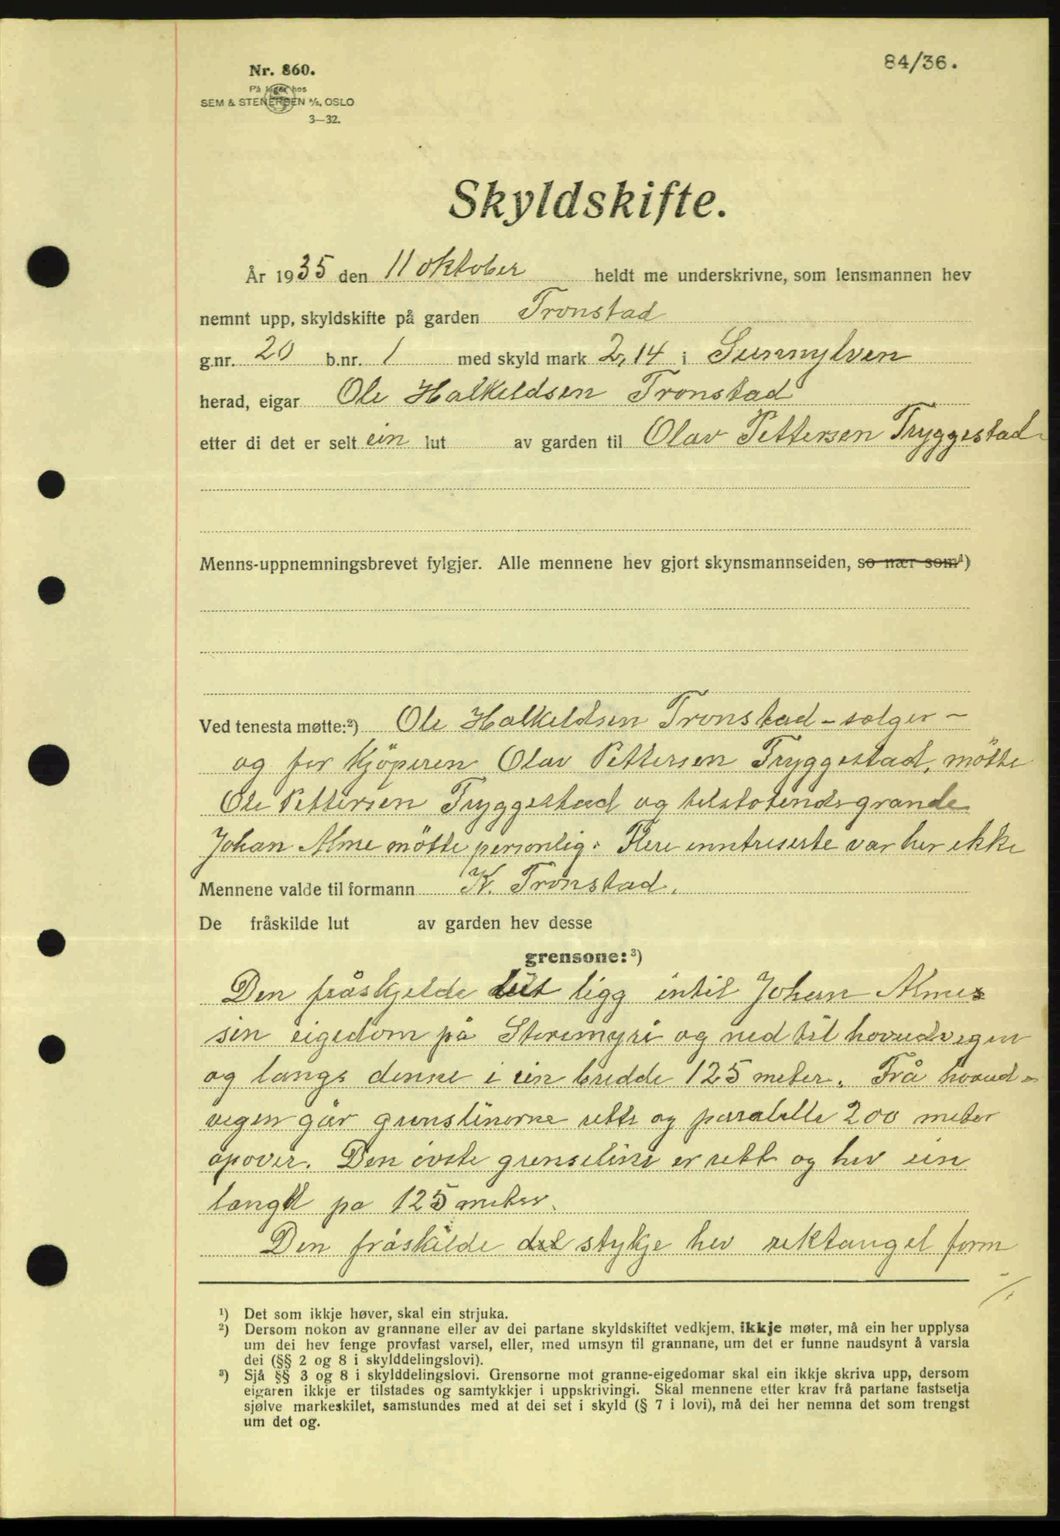 84/36.
Nr. 860.
På lager hos
SEM & STENERSEN A/S, OSLO
3—32.
Skyldskifte.
År 1935 den 11 oktober heldt me underskrivne, som lensmannen hev
nemnt upp, skyldskifte på garden Tronstad
g.nr. 20 b.nr. 1 med skyld mark 2,14 i Sunnylven
herad, eigar Ole Halkeldsen Tronstad
etter di det er selt ein lut av garden til Olav Pettersen Tryggestad
Menns-uppnemningsbrevet fylgjer. Alle mennene hev gjort skynsmannseiden, so nær som¹)
Ved tenesta møtte:²) Ole Halkeldsen Tronstad - selger -
og for kjöperen Olav Pettersen Tryggestad, mötte
Ole Pettersen Tryggestad og tilstøtende grande
Johan Alme mötte personlig. Flere inntreserte var her ikke
Mennene valde til formann K. Tronstad.
De fråskilde lut av garden hev desse
grensone:³)
Den fråskjelde lut ligg intil Johan Almes
sin eigedom på Storemyri og ned til hovudvegen
og langs denne i ein bredde 125 meter. Frå hovud-
vegen går grenslinorne rette og paralelle 200 meter
opover. Den övste grenseline er rett og hev ein
langd på 125 meter.
Den fråskilde del stykje hev rektangel form
/.
¹) Det som ikkje høver, skal ein strjuka.
²) Dersom nokon av grannane eller av dei partane skyldskiftet vedkjem, ikkje møter, må ein her upplysa
um dei hev fenge provfast varsel, eller, med umsyn til grannane, um det er funne naudsynt å varsla
dei (§§ 2 og 8 i skylddelingslovi).
³) Sjå §§ 3 og 8 i skylddelingslovi. Grensorne mot granne-eigedomar skal ein ikkje skriva upp, dersom
eigaren ikkje er tilstades og samtykkjer i uppskrivingi. Skal mennene etter krav frå partane fastsetja
sjølve markeskilet, samstundes med at dei set i skyld (§ 7 i lovi), må dei her nemna det som trengst
um det og.